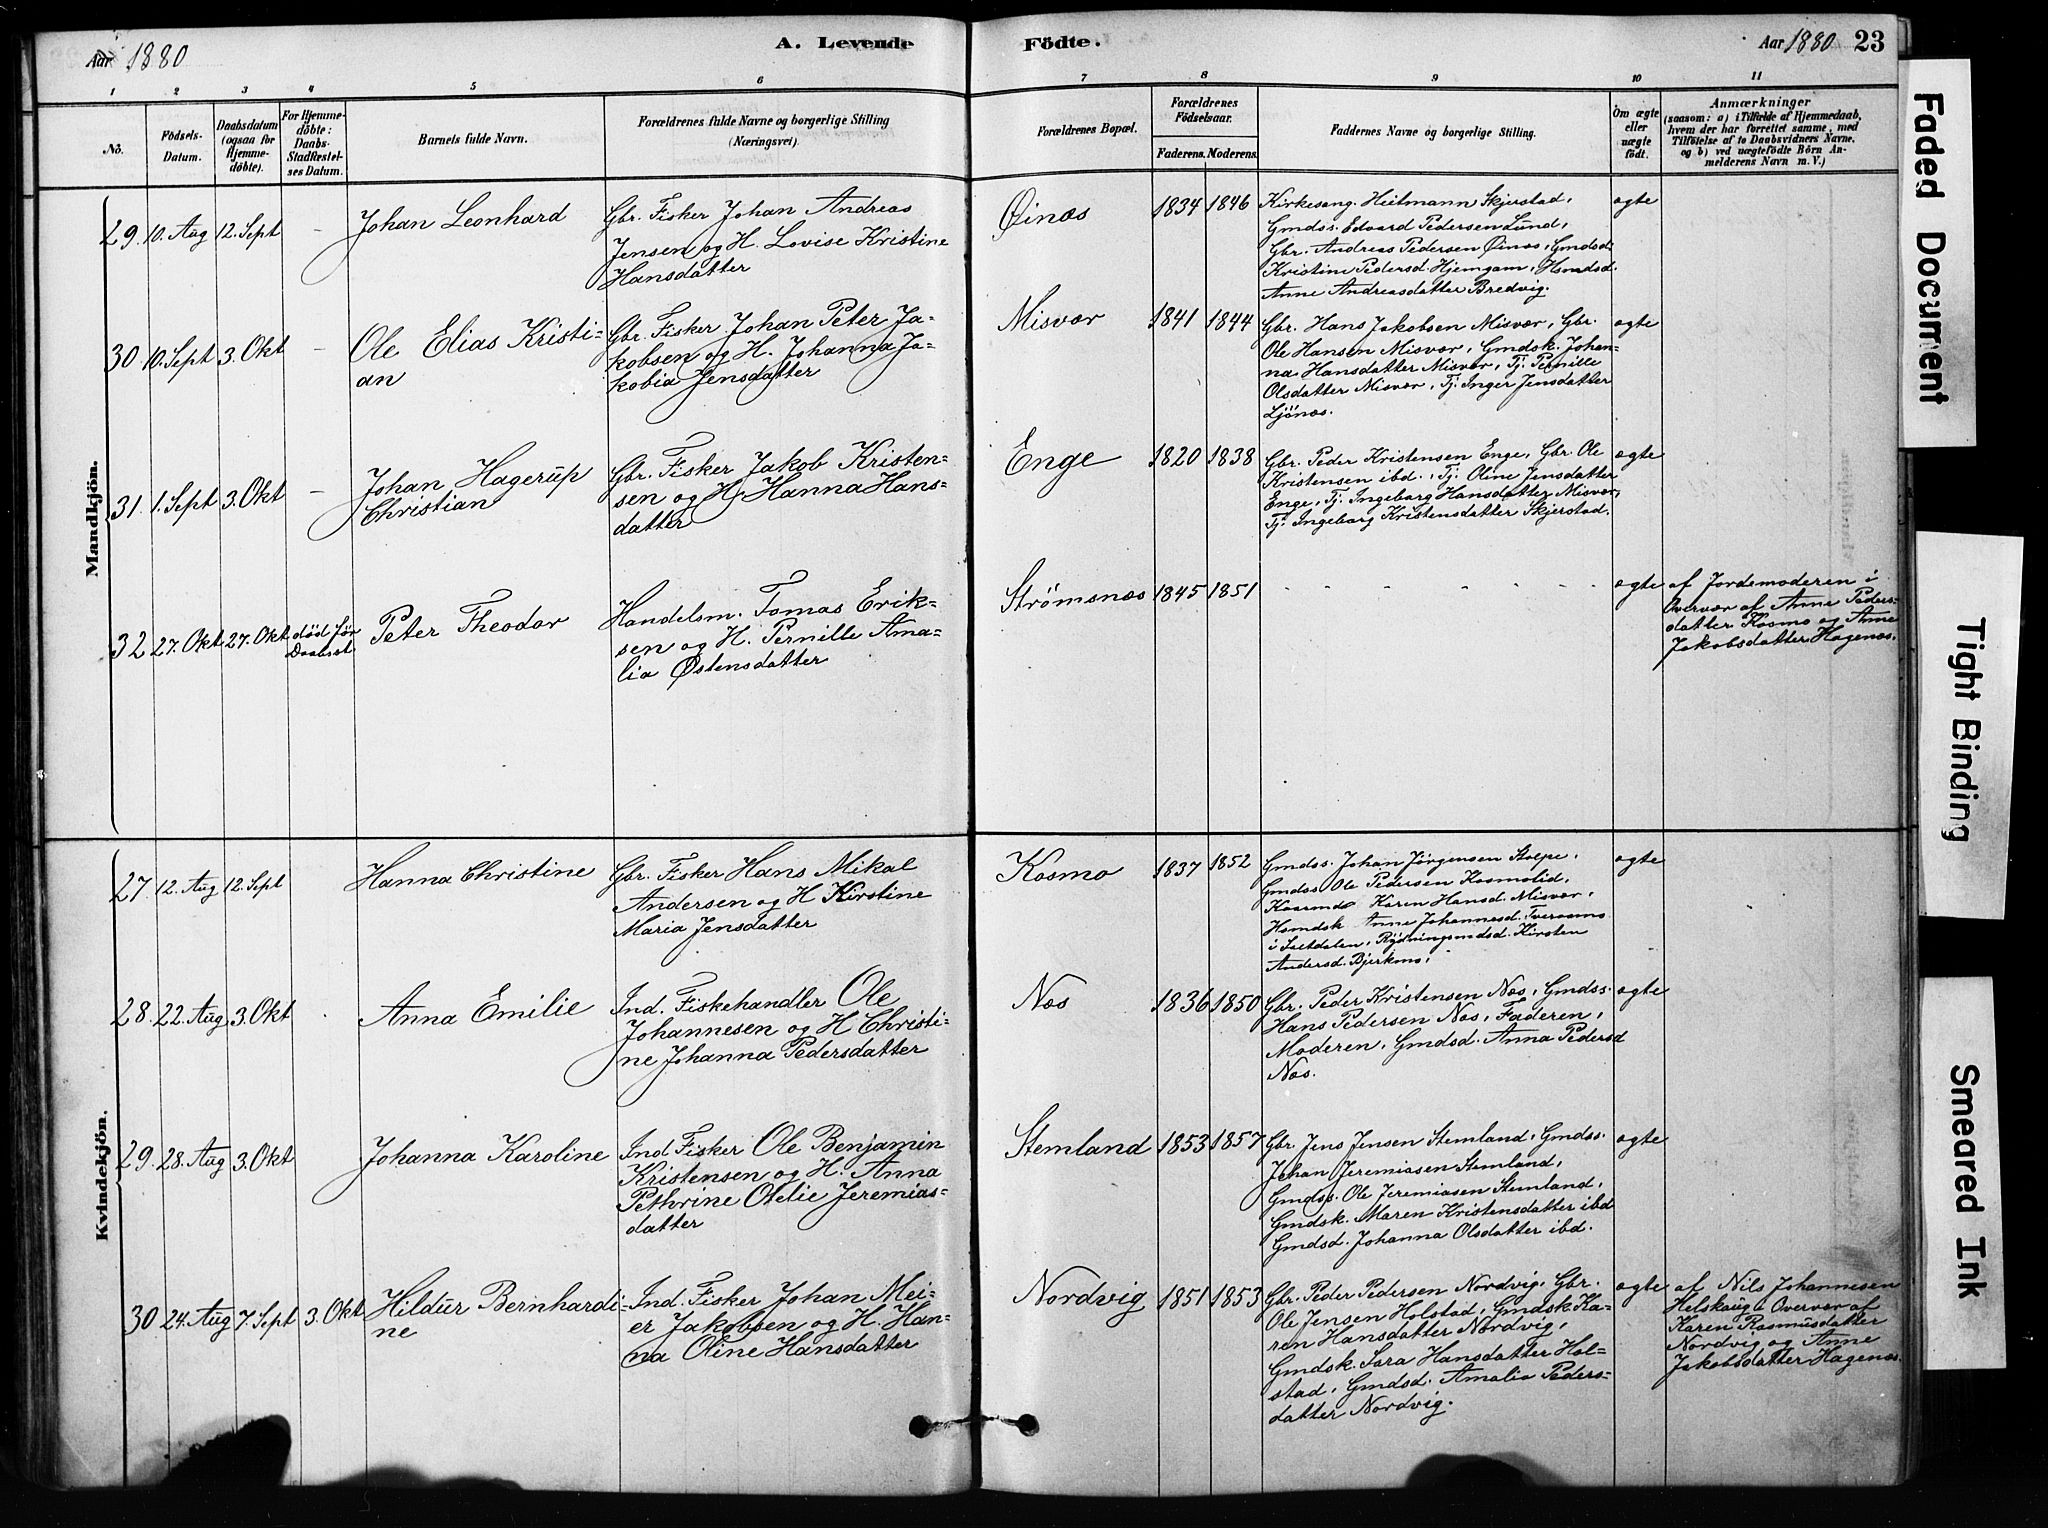 Aar 1880
A. Levende
Födte.
Aar 1880 23
1 2 3 4 5 6 7 8 9 10 11
No.
Födsels-
Datum.
Daabsdatum
(ogsaa for
Hjemme-
döbte).
For Hjemme-
döbte:
Daabs-
Stadfæstel-
ses Datum.
Barnets fulde Navn.
Forældrenes fulde Navne og borgerlige Stilling
(Næringsvei).
Forældrenes Bopæl.
Forældrenes
Födselsaar.
Faderens. Moderens.
Faddernes Navne og borgerlige Stilling.
Om ægte
eller
uægte
født.
Anmærkninger
(saasom: a) i Tilfælde af Hjemmedaab,
hvem der har forrettet samme, med
Tilföielse af to Daabsvidners Navne,
og b) ved uægtefödte Börn An-
melderens Navn m. V.)
Mandkjön.
29. 10. Aug 12. Sept -
Johan Leonhard
Gbr. Fisker Johan Andreas
Jensen og H. Lovise Kristine
Hansdatter
Øinæs
1834 1846
Kirkesang. Heitmann Skjerstad,
Gmdss. Edvard Pedersen Lund,
Gbr. Andreas Pedersen Øinæs, Gmdsd.
Kristine Pedersd. Hjemgam, Hsmdsd.
Anne Andreasdatter Bredvig.
ægte
30 10. Sept 3. Okt -
Ole Elias Kristi-
an
Gbr. Fisker Johan Peter Ja-
kobsen og H. Johanna Ja-
kobia Jensdatter
Misvær
1841 1844
Gbr. Hans Jakobsen Misvær, Gbr.
Ole Hansen Misvær, Gmdsk. Johan-
na Hansdatter Misvær, Tj. Pernille
Olsdatter Misvær, Tj. Inger Jensdatter
Ljönæs.
ægte
31. 1. Sept 3. Okt -
Johan Hagerup
Christian
Gbr. Fisker Jakob Kristen-
sen og H. Hanna Hans-
datter
Enge
1820 1838
Gbr. Peder Kristensen Enge, Gbr. Ole
Kristensen ibd., Tj. Oline Jensdatter
Enge, Tj. Ingeborg Hansdatter Misvær,
Tj. Ingeborg Kristensdatter Skjerstad.
ægte
32 27. Okt 27. Okt død før
Daabsst
Peter Theodor
Handelsm. Tomas Erik-
sen og H. Pernille Ama-
lia Østensdatter
Strømsnæs
1845 1851
- - - - - - -
ægte
af Jordemoderen i
Overvær af Anne Peders-
datter Kosmo og Anne
Jakobsdatter Hagenæs.
Kvindekjön.
27. 12. Aug 12. Sept
Hanna Christine
Gbr. Fisker Hans Mikal
Andersen og H Kirstine
Maria Jensdatter
Kosmo
1837 1852
Gmdss. Johan Jörgensen Stolpe,
Gmdss Ole Pedersen Kosmolid,
Karen Hansd. Misvær,
Hsmdsk Anne Johannesd. Tveraamo
i Saltdalen, Rydningsmdsd. Kirsten
Andersd. Bjerkmo,
ægte
28. 22. Aug 3. Okt
Anna Emilie
Ind. Fiskehandler Ole
Johannesen og H Christi-
ne Johanna Pedersdatter
Næs
1836 1850
Gbr. Peder Kristensen Næs, Gmdss.
Hans Pedersen Næs, Faderen,
Moderen, Gmdsd. Anna Pedersd
Næs.
ægte
29. 28. Aug 3. Okt
Johanna Karoline
Ind Fisker Ole Benjamin
Kristensen og H. Anna
Pethrine Otelie Jeremias-
datter
Stemland
1853 1857
Gbr Jens Jensen Stemland, Gmdss.
Johan Jeremiasen Stemland,
Gmdss. Ole Jeremiasen Stemland,
Gmdsk. Maren Kristensdatter ibd
Gmdsd. Johanna Olsdatter ibd.
ægte
30 24. Aug 7. Sept 3. Okt
Hildur Bernhardi-
ne
Ind. Fisker Johan Mei-
er Jakobsen og H. Han-
na Oline Hansdatter
Nordvig
1851 1853
Gbr. Peder Pedersen Nordvig, Gbr.
Ole Jensen Holstad, Gmdsk Ka-
ren Hansdatter Nordvig,
Gmdsk. Sara Hansdatter Hol-
stad, Gmdsd. Amalia Peders-
datter Nordvig.
ægte
af Nils Johannesen
Helskaug i Overvær af
Karen Rasmusdatter
Nordvig og Anne
Jakobsdatter Hagenæs.
Faded Document
Tight Binding
Smeared Ink